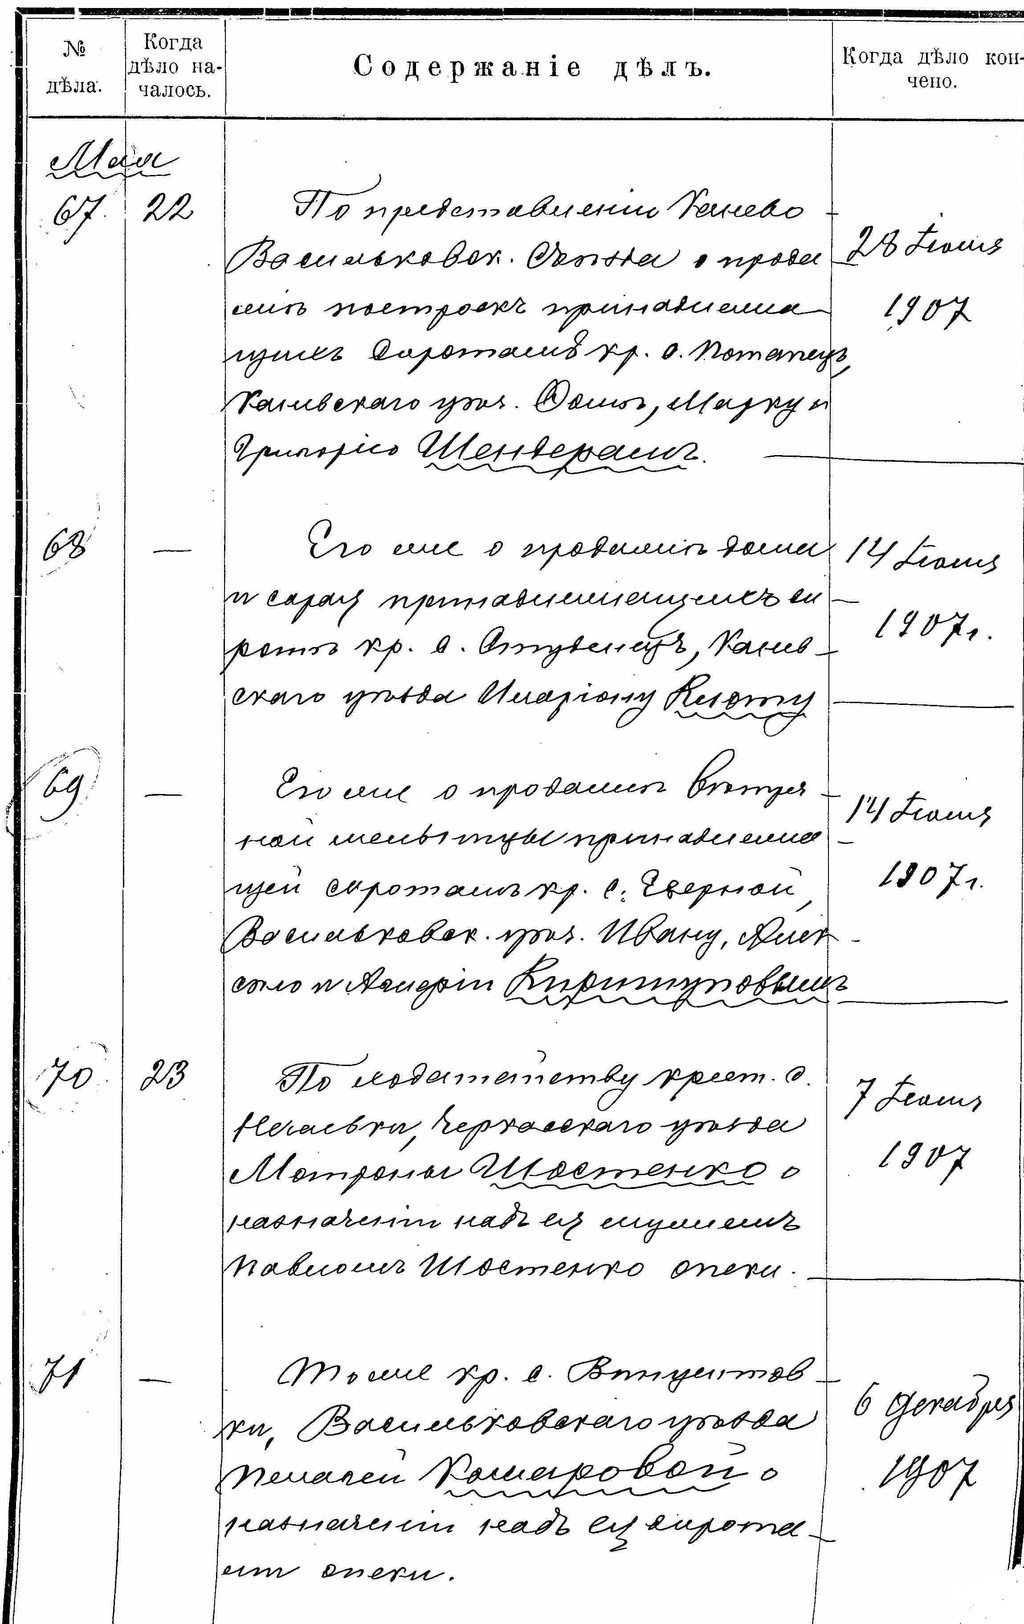 № дѣла.
Когда дѣло на-
чалось.
Содержаніе дѣлъ.
Когда дѣло кон-
чено.
Мая
67. 22
По представленію Канево-
Васильковск. Съѣзда о прода
жѣ построекъ принадлежа-
щихъ сиротамъ кр. с. Потапецъ,
Каневскаго уѣз. Ѳомѣ, Марку и
Григорію Шендерамъ.
28 Іюня
1907
68 —
Его же о продажѣ дома
и сарая принадлежащихъ си-
ротѣ кр. с. Студенецъ, Канев-
скаго уѣзда Иларіону Кноту
14 Іюня
1907 г.
69 —
Его же о продажѣ вѣтря-
ной мельницы принадлежа-
щей сиротамъ кр. с. Езерной,
Васильковск. уѣз. Ивану, Алек-
сѣю и Андрію Киришуповымъ
14 Іюня
1907 г.
70 23
По ходатайству крест. с.
Нечаевки, Черкасскаго уѣзда
Матроны Шостенко о
назначеніи надъ ея мужемъ
Павломъ Шостенко опеки.
7 Іюня
1907
71 —
То же кр. с. Винцентов-
ки, Васильковскаго уѣзда
Пелагеи Комаровой о
назначеніи надъ ея сирота-
ми опеки.
6 Декабря
1907